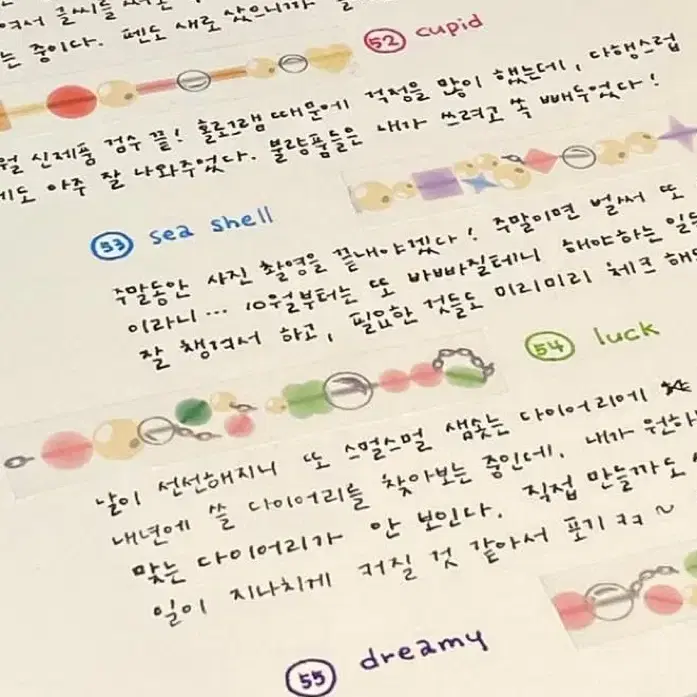 여서 글씨를
는 중이다. 펜도 새로 샀으니까
52 cupid
월 신제품 검수 끝! 홀로그램 때문에 걱정을 많이 했는데, 다행스럽
게도 아주 잘 나와주었다. 불량품들은 내가 쓰려고 쏙 빼두었다!
53 sea shell
주말동안 사진 촬영을 끝내야겠다! 주말이면 벌써 또
이라니... 10월부터는 또 바빠질테니 해야하는 일들
잘 챙겨서 하고, 필요한 것들도 미리미리 체크 해
54 luck
날이 선선해지니 또 스멀스멀 샘솟는 다이어리에
내년에 쓸 다이어리를 찾아보는 중인데, 내가 원하
맞는 다이어리가 안 보인다. 직접 만들까도
일이 지나치게 커질 것 같아서 포기 ㅋㅋ ~
55 dreamy